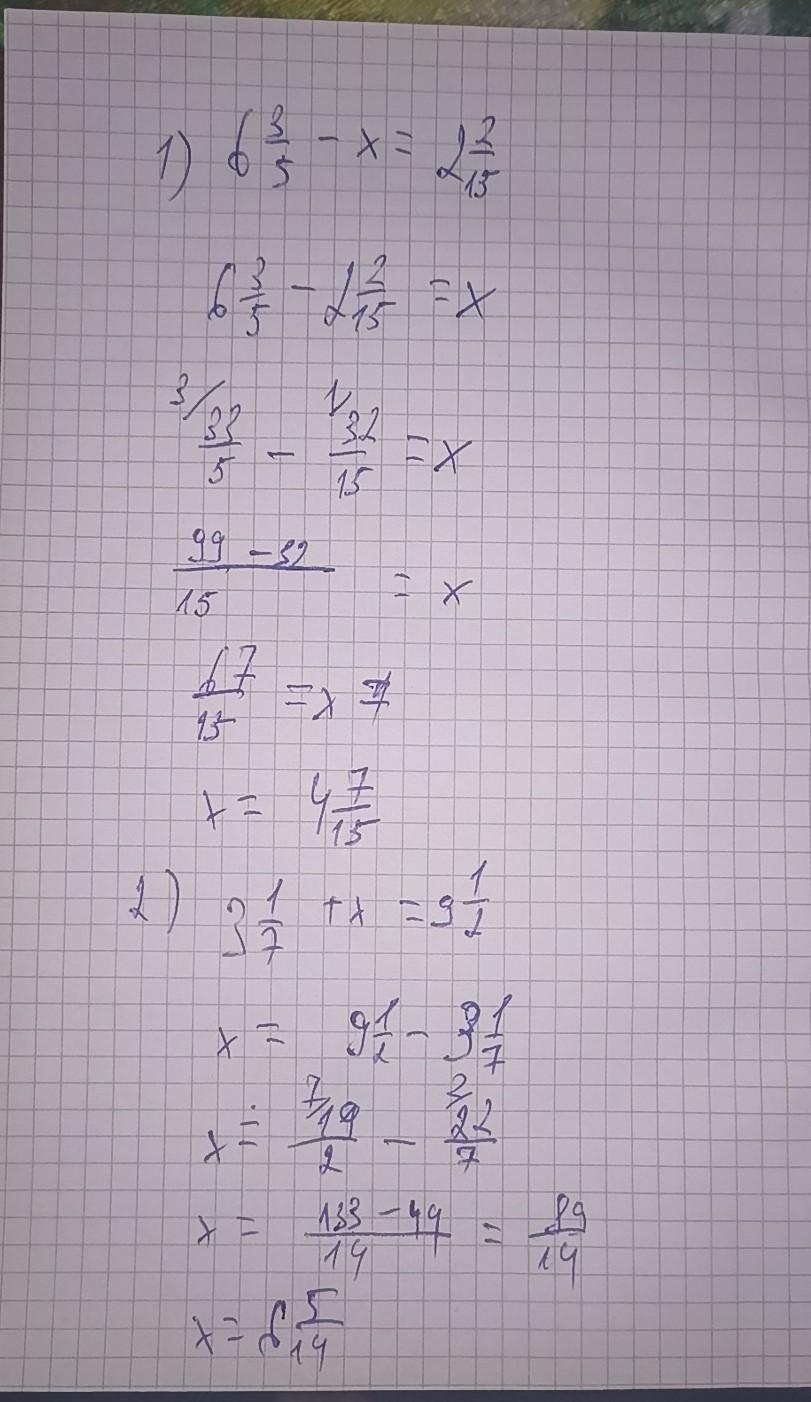 1) 6 3/5 - x = 2 2/15
6 3/5 - 2 2/15 = x
3/ 33/5 - 1/ 32/15 = x
(99 - 32)/15 = x
67/15 = x
x = 4 7/15
2) 3 1/7 + x = 9 1/2
x = 9 1/2 - 3 1/7
x = 7/ 19/2 - 2/ 22/7
x = (133 - 44)/14 = 89/14
x = 6 5/14